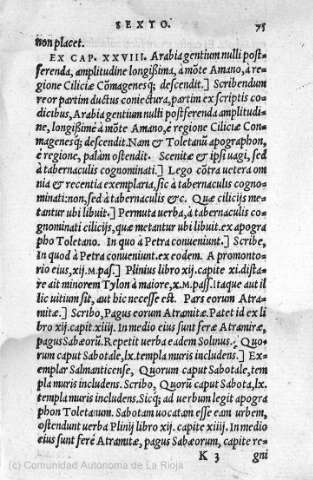 SEXTO. 75
non placet.
EX CAP. XXVIII. Arabia gentium nulli post-
ferenda, amplitudine longißima, à mōte Amano, à re-
gione Ciliciæ Cōmagenesq; descendit.] Scribendum
reor partim ductus coniectura, partim ex scriptis co-
dicibus, Arabia gentium nulli postferenda amplitudi-
ne, longißimè à mōte Amano, è regione Ciliciæ Com-
magenesq; descendit. Nam & Toletanū apographon,
è regione, palàm ostendit. Scenitæ & ipsi uagi, sed
à tabernaculis cognominati.] Lego cōtra uetera om
nia & recentia exemplaria, sic à tabernaculis cogno-
minati: non, sed à tabernaculis &c. Quæ cilicijs me-
tantur ubi libuit.] Permuta uerba, à tabernaculis co-
gnominati cilicijs, quæ metantur ubi libuit ex apogra
pho Toletano. In quo à Petra conueniunt.] Scribe,
In quod à Petra conueniunt. ex eodem. A promonto-
rio eius, xij.M.pass.] Plinius libro xij. capite xi. dista-
re ait minorem Tylon à maiore, x.M.pass. Itaque aut il
lic uitium sit, aut hic necesse est. Pars eorum Atra-
mitæ.] Scribo, Pagus eorum Atramitæ. Patet id ex li
bro xij. capit. xiiij. In medio eius sunt feræ Atramitæ,
pagus Sabæorū. Repetit uerba eadem Solinus. Quo-
rum caput Sabotale, lx. templa muris includens.] Ex-
emplar Salmanticense, Quorum caput Sabotale, tem
pla muris includens. Scribo, Quorū caput Sabota, lx.
templa muris includens. Sicq; ad uerbum legit apogra
phon Toletanum. Sabotam uocatam esse eam urbem,
ostendunt uerba Plinij libro xij. capite xiiij. In medio
eius sunt ferè Atramitæ, pagus Sabæorum, capite re-
K 3 gni
(c) Comunidad Autonoma de La Rioja